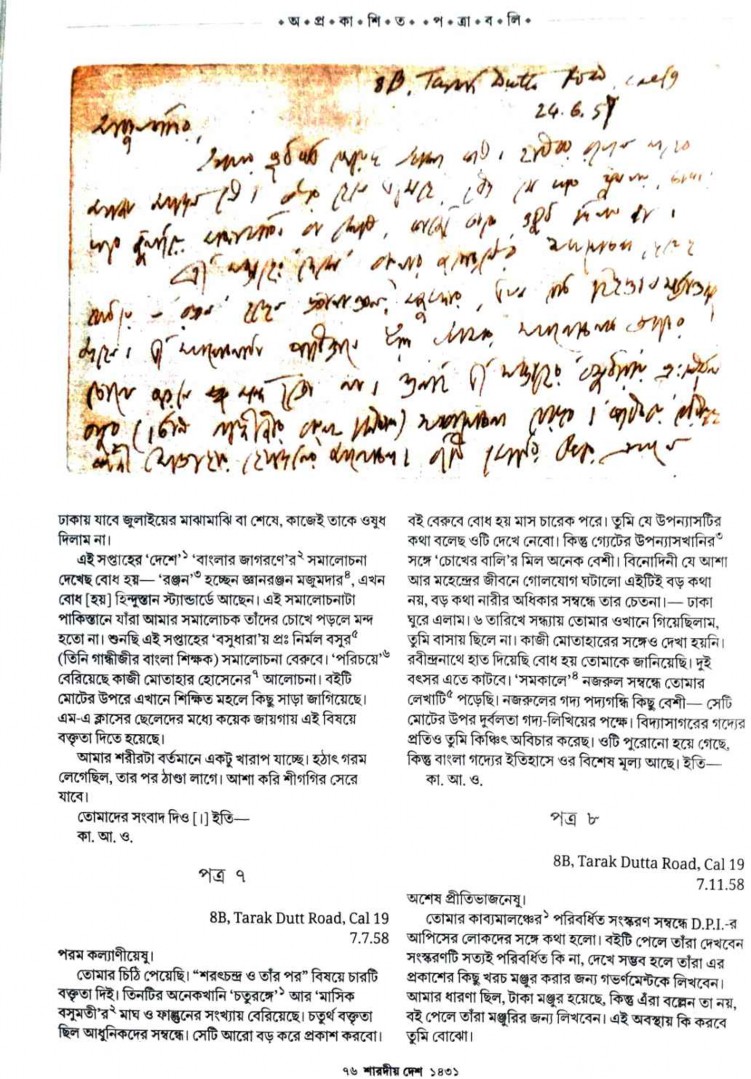 • অ • প্র • কা • শি • ত • • প • ত্রা • ব • লি •
8B, Tarak Dutta Road, Cal 19
24.6.57
ঢাকায় যাবে জুলাইয়ের মাঝামাঝি বা শেষে, কাজেই তাকে ওষুধ
দিলাম না।
এই সপ্তাহের ‘দেশে’১ ‘বাংলার জাগরণে’র২ সমালোচনা
দেখেছ বোধ হয়— ‘রঞ্জন’৩ হচ্ছেন জ্ঞানরঞ্জন মজুমদার৪, এখন
বোধ [হয়] হিন্দুস্তান স্ট্যান্ডার্ডে আছেন। এই সমালোচনাটা
পাকিস্তানে যাঁরা আমার সমালোচক তাঁদের চোখে পড়লে মন্দ
হতো না। শুনছি এই সপ্তাহের ‘বসুধারা’য় প্রঃ নির্মল বসুর৫
(তিনি গান্ধীজীর বাংলা শিক্ষক) সমালোচনা বেরুবে। ‘পরিচয়ে’৬
বেরিয়েছে কাজী মোতাহার হোসেনের৭ আলোচনা। বইটি
মোটের উপরে এখানে শিক্ষিত মহলে কিছু সাড়া জাগিয়েছে।
এম-এ ক্লাসের ছেলেদের মধ্যে কয়েক জায়গায় এই বিষয়ে
বক্তৃতা দিতে হয়েছে।
আমার শরীরটা বর্তমানে একটু খারাপ যাচ্ছে। হঠাৎ গরম
লেগেছিল, তার পর ঠাণ্ডা লাগে। আশা করি শীগগির সেরে
যাবে।
তোমাদের সংবাদ দিও [।] ইতি—
কা. আ. ও.
পত্র ৭
8B, Tarak Dutt Road, Cal 19
7.7.58
পরম কল্যাণীয়েষু।
তোমার চিঠি পেয়েছি। “শরৎচন্দ্র ও তাঁর পর” বিষয়ে চারটি
বক্তৃতা দিই। তিনটির অনেকখানি ‘চতুরঙ্গে’১ আর ‘মাসিক
বসুমতী’র২ মাঘ ও ফাল্গুনের সংখ্যায় বেরিয়েছে। চতুর্থ বক্তৃতা
ছিল আধুনিকদের সম্বন্ধে। সেটি আরো বড় করে প্রকাশ করবো।
বই বেরুবে বোধ হয় মাস চারেক পরে। তুমি যে উপন্যাসটির
কথা বলেছ ওটি দেখে নেবো। কিন্তু গ্যেটের উপন্যাসখানির৩
সঙ্গে ‘চোখের বালি’র মিল অনেক বেশী। বিনোদিনী যে আশা
আর মহেন্দ্রের জীবনে গোলযোগ ঘটালো এইটিই বড় কথা
নয়, বড় কথা নারীর অধিকার সম্বন্ধে তার চেতনা।— ঢাকা
ঘুরে এলাম। ৬ তারিখে সন্ধ্যায় তোমার ওখানে গিয়েছিলাম,
তুমি বাসায় ছিলে না। কাজী মোতাহারের সঙ্গেও দেখা হয়নি।
রবীন্দ্রনাথে হাত দিয়েছি বোধ হয় তোমাকে জানিয়েছি। দুই
বৎসর এতে কাটবে। ‘সমকালে’৪ নজরুল সম্বন্ধে তোমার
লেখাটি৫ পড়েছি। নজরুলের গদ্য পদ্যগন্ধি কিছু বেশী— সেটি
মোটের উপর দুর্বলতা গদ্য-লিখিয়ের পক্ষে। বিদ্যাসাগরের গদ্যের
প্রতিও তুমি কিঞ্চিৎ অবিচার করেছ। ওটি পুরোনো হয়ে গেছে,
কিন্তু বাংলা গদ্যের ইতিহাসে ওর বিশেষ মূল্য আছে। ইতি—
কা. আ. ও.
পত্র ৮
8B, Tarak Dutta Road, Cal 19
7.11.58
অশেষ প্রীতিভাজনেষু।
তোমার কাব্যমালঞ্চের১ পরিবর্ধিত সংস্করণ সম্বন্ধে D.P.I.-র
আপিসের লোকদের সঙ্গে কথা হলো। বইটি পেলে তাঁরা দেখবেন
সংস্করণটি সত্যই পরিবর্ধিত কি না, দেখে সম্ভব হলে তাঁরা এর
প্রকাশের কিছু খরচ মঞ্জুর করার জন্য গভর্ণমেন্টকে লিখবেন।
আমার ধারণা ছিল, টাকা মঞ্জুর হয়েছে, কিন্তু এঁরা বল্লেন তা নয়,
বই পেলে তাঁরা মঞ্জুরির জন্য লিখবেন। এই অবস্থায় কি করবে
তুমি বোঝো।
৭৬ শারদীয় দেশ ১৪৩১